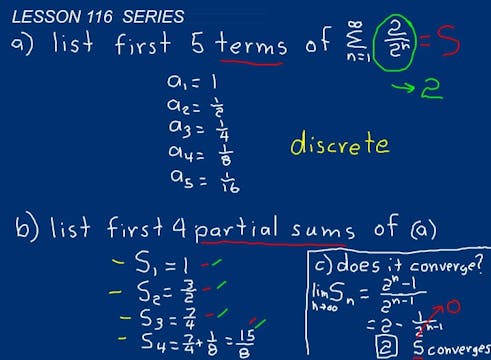 LESSON 116 SERIES
a) list first 5 terms of ∞ Σ n=1 2/2ⁿ = S
→ 2
a₁ = 1
a₂ = 1/2
a₃ = 1/4
a₄ = 1/8
a₅ = 1/16
discrete
b) list first 4 partial sums of (a)
- S₁ = 1
- S₂ = 3/2
- S₃ = 7/4
- S₄ = 7/4 + 1/8 = 15/8
c) does it converge?
lim n→∞ Sₙ = 2ⁿ-1/2ⁿ⁻¹
= 2 - 1/2ⁿ⁻¹ → 0
2 S converges